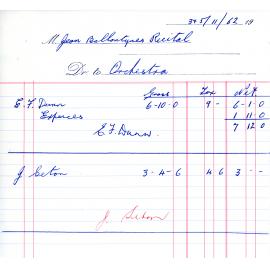 3rd 5/11/62 19
M. Jean Ballantynes Recital
Dr to Orchestra
Gross Tax Nett
E. F. Dunn 6-10-0 9 - 6-1-0
Expences 1 11 0
E F Dunn 7 12 0
J Seton 3-4-6 4 6 3 - -
J Seton